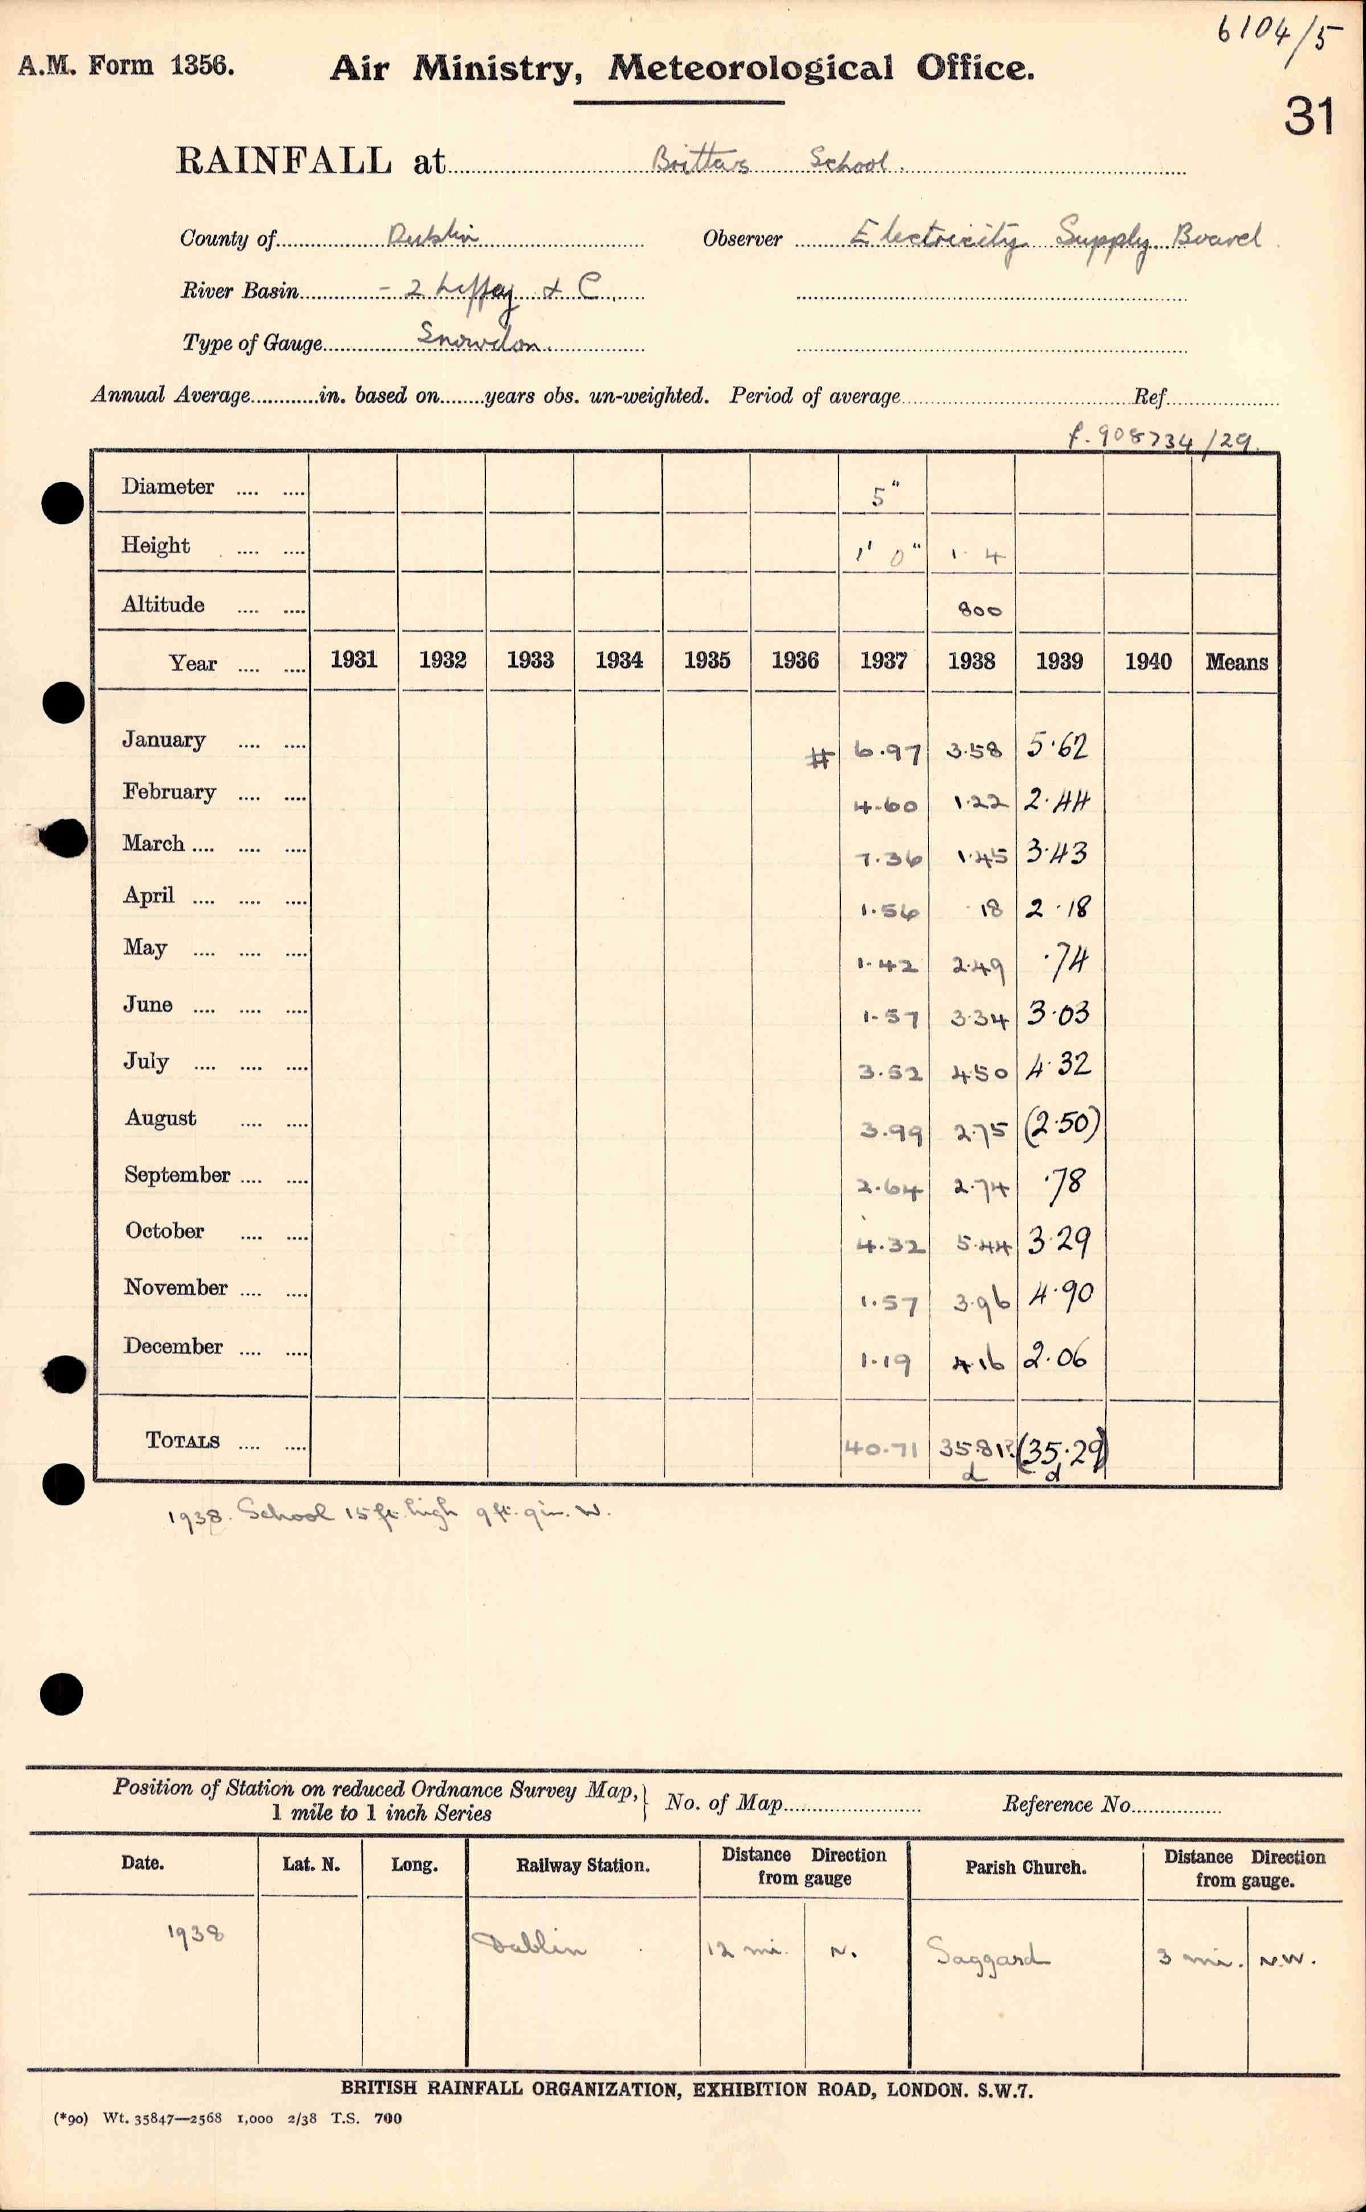 6104/5
A.M. Form 1356. Air Ministry, Meteorological Office.
31
RAINFALL at Brittas School.
County of Dublin Observer Electricity Supply Board
River Basin - 2 Liffey & C.
Type of Gauge Snowdon.
Annual Average in. based on years obs. un-weighted. Period of average Ref
f. 908734/29.
Diameter 5"
Height 1' 0" 1 4
Altitude 800
Year 1931 1932 1933 1934 1935 1936 1937 1938 1939 1940 Means
January # 6.97 3.58 5.62
February 4.60 1.22 2.44
March 7.36 1.45 3.43
April 1.56 .18 2.18
May 1.42 2.49 .74
June 1.57 3.34 3.03
July 3.52 4.50 4.32
August 3.99 2.75 (2.50)
September 2.64 2.74 .78
October 4.32 5.44 3.29
November 1.57 3.96 4.90
December 1.19 4.16 2.06
TOTALS 40.71 35.81? (35.29)
d d
1938. School 15 ft. high 9 ft. 9 in. W.
Position of Station on reduced Ordnance Survey Map, No. of Map Reference No.
1 mile to 1 inch Series
Date. Lat. N. Long. Railway Station. Distance Direction from gauge Parish Church. Distance Direction from gauge.
1938 Dublin 12 mi. N. Saggard 3 mi. N.W.
BRITISH RAINFALL ORGANIZATION, EXHIBITION ROAD, LONDON. S.W.7.
(*90) Wt. 35847—2568 1,000 2/38 T.S. 700